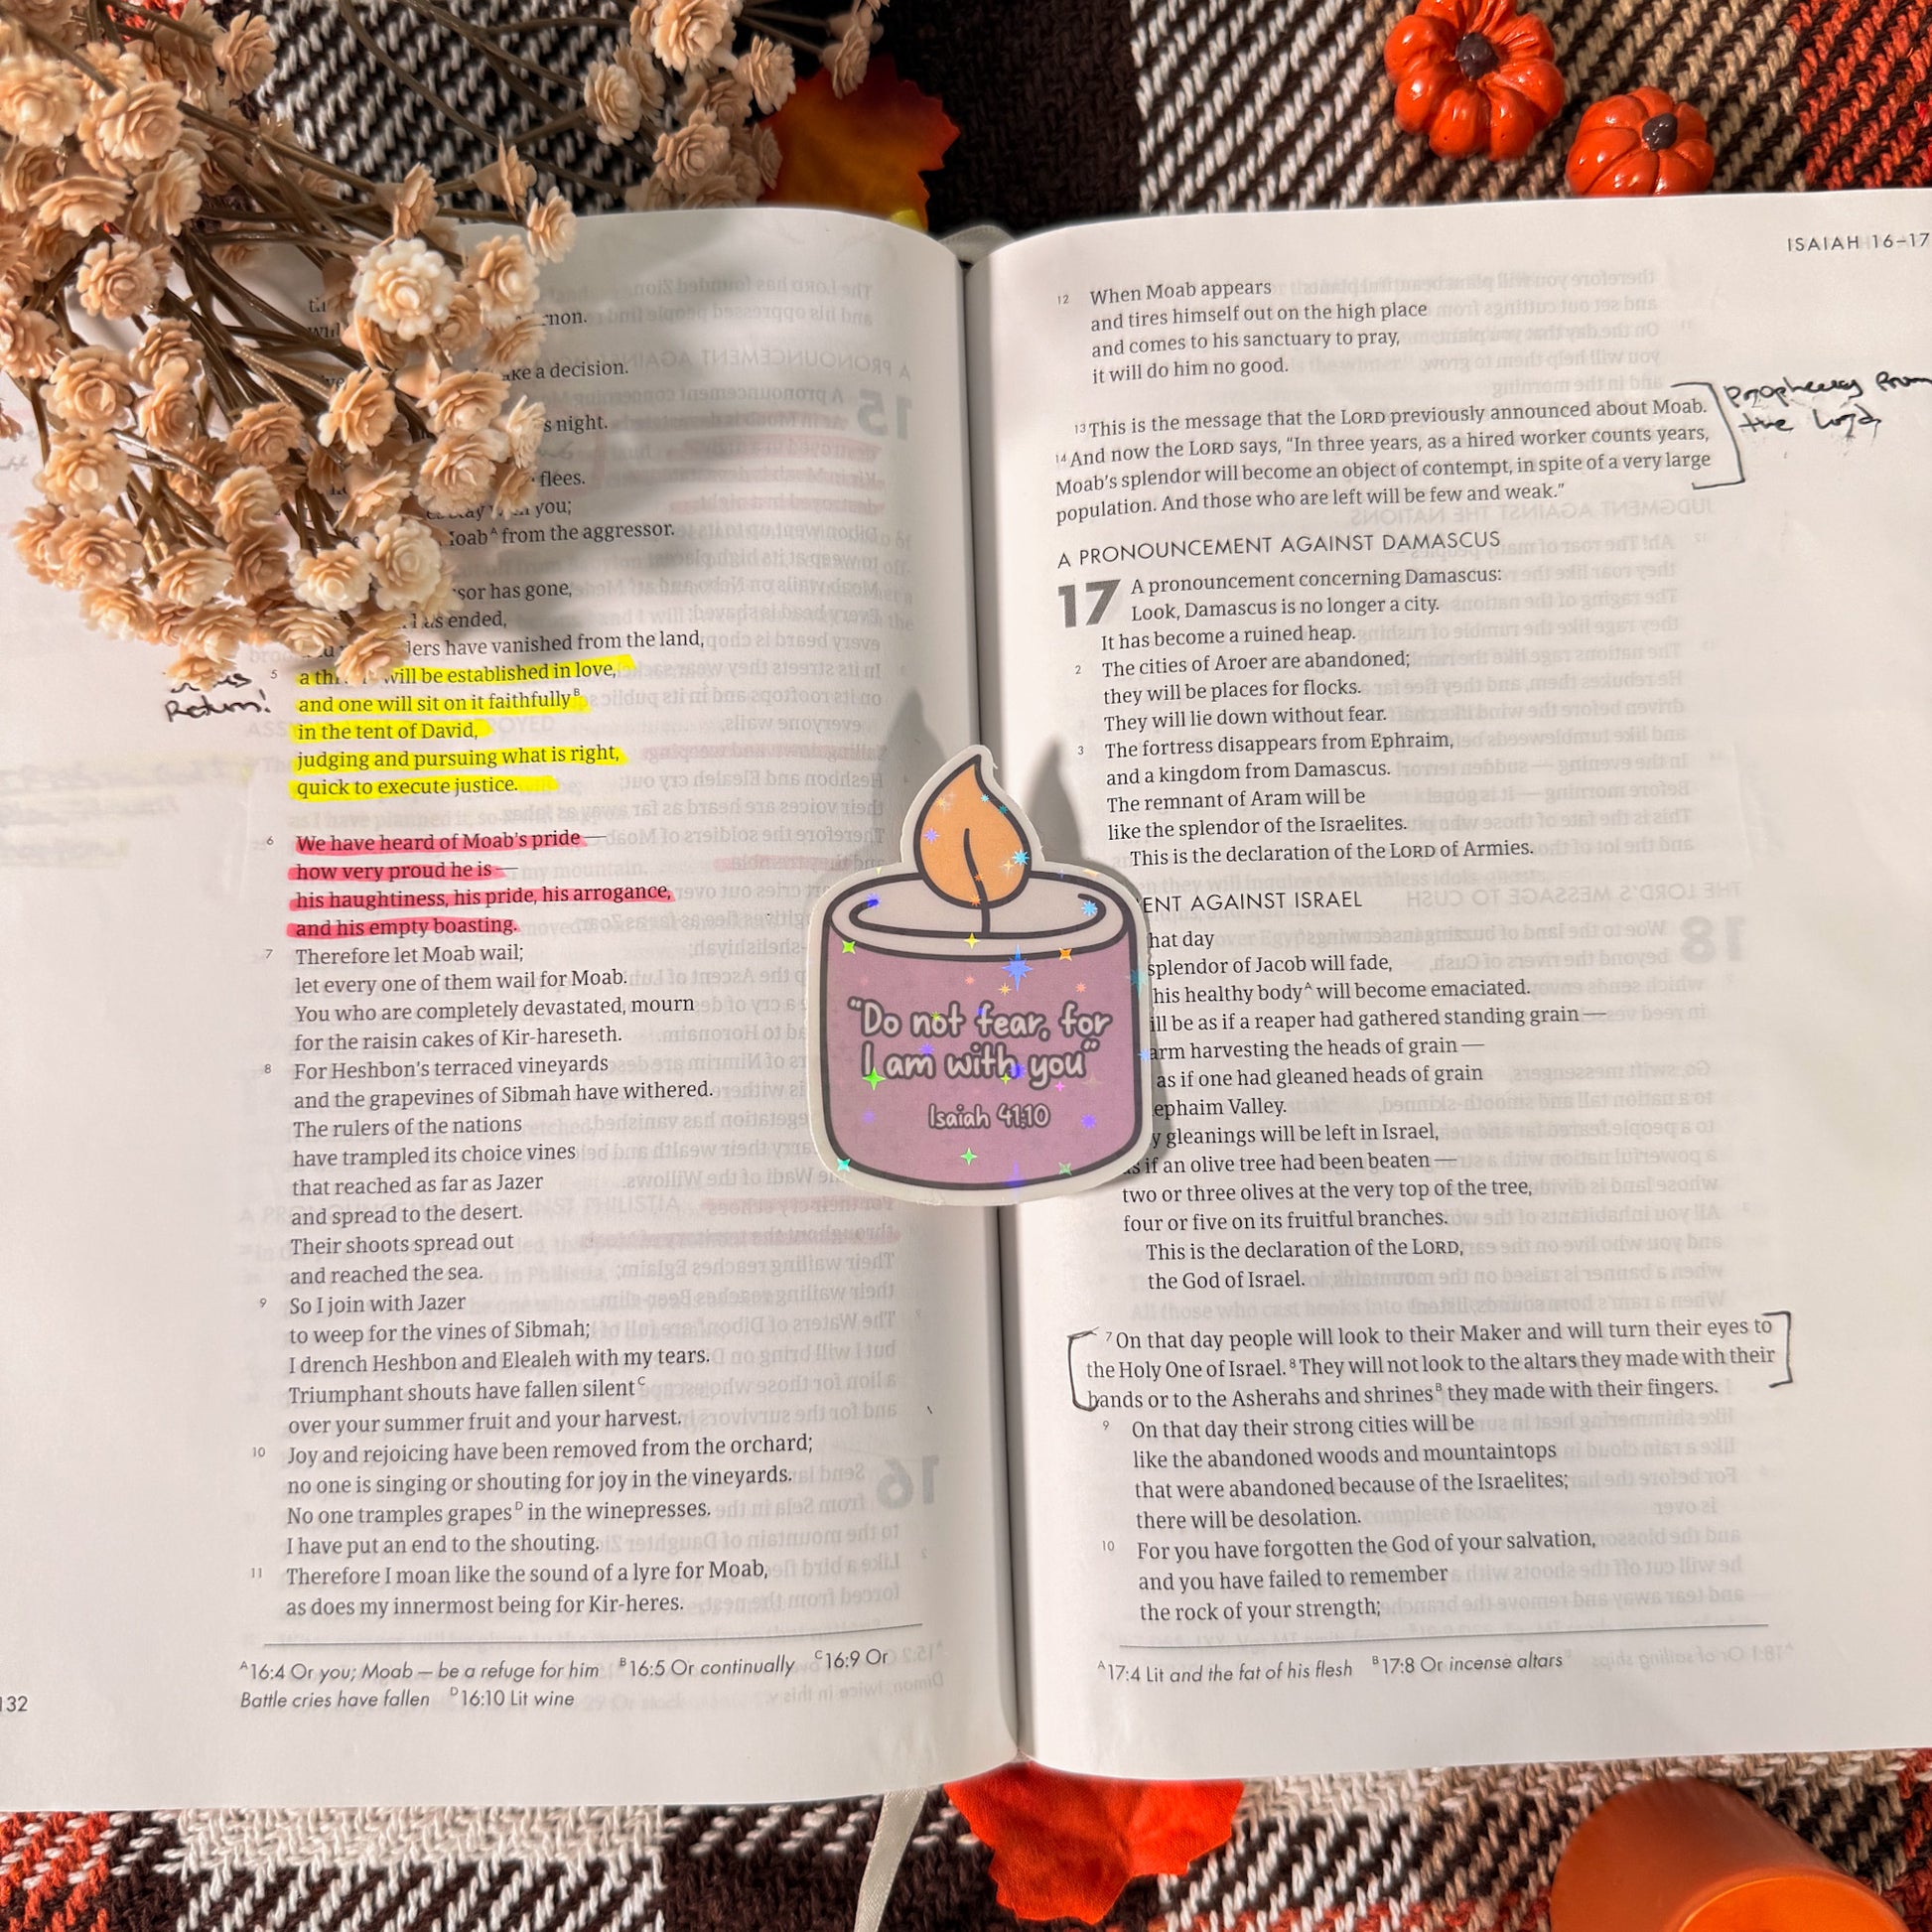 non.
ke a decision.
s night.
flees.
you;
from the aggressor.
has gone,
ended,
have vanished from the land,
5 a will be established in love,
and one will sit on it faithfullyᴮ
in the tent of David,
judging and pursuing what is right,
quick to execute justice.
Return!
6 We have heard of Moab's pride —
how very proud he is —
his haughtiness, his pride, his arrogance,
and his empty boasting.
7 Therefore let Moab wail;
let every one of them wail for Moab.
You who are completely devastated, mourn
for the raisin cakes of Kir-hareseth.
8 For Heshbon's terraced vineyards
and the grapevines of Sibmah have withered.
The rulers of the nations
have trampled its choice vines
that reached as far as Jazer
and spread to the desert.
Their shoots spread out
and reached the sea.
9 So I join with Jazer
to weep for the vines of Sibmah;
I drench Heshbon and Elealeh with my tears.
Triumphant shouts have fallen silentᶜ
over your summer fruit and your harvest.
10 Joy and rejoicing have been removed from the orchard;
no one is singing or shouting for joy in the vineyards.
No one tramples grapesᴰ in the winepresses.
I have put an end to the shouting.
11 Therefore I moan like the sound of a lyre for Moab,
as does my innermost being for Kir-heres.
ᴬ16:4 Or you; Moab — be a refuge for him ᴮ16:5 Or continually ᶜ16:9 Or
Battle cries have fallen ᴰ16:10 Lit wine
132
"Do not fear, for
I am with you"
Isaiah 41:10
ISAIAH 16–17
12 When Moab appears
and tires himself out on the high place
and comes to his sanctuary to pray,
it will do him no good.
13 This is the message that the LORD previously announced about Moab.
14 And now the LORD says, "In three years, as a hired worker counts years,
Moab's splendor will become an object of contempt, in spite of a very large
population. And those who are left will be few and weak."
from
the Lord
A PRONOUNCEMENT AGAINST DAMASCUS
17 A pronouncement concerning Damascus:
Look, Damascus is no longer a city.
It has become a ruined heap.
2 The cities of Aroer are abandoned;
they will be places for flocks.
They will lie down without fear.
3 The fortress disappears from Ephraim,
and a kingdom from Damascus.
The remnant of Aram will be
like the splendor of the Israelites.
This is the declaration of the LORD of Armies.
ENT AGAINST ISRAEL
hat day
splendor of Jacob will fade,
his healthy bodyᴬ will become emaciated.
ill be as if a reaper had gathered standing grain —
arm harvesting the heads of grain —
as if one had gleaned heads of grain
ephaim Valley.
y gleanings will be left in Israel,
as if an olive tree had been beaten —
two or three olives at the very top of the tree,
four or five on its fruitful branches.
This is the declaration of the LORD,
the God of Israel.
7 On that day people will look to their Maker and will turn their eyes to
the Holy One of Israel. 8 They will not look to the altars they made with their
hands or to the Asherahs and shrinesᴮ they made with their fingers.
9 On that day their strong cities will be
like the abandoned woods and mountaintops
that were abandoned because of the Israelites;
there will be desolation.
10 For you have forgotten the God of your salvation,
and you have failed to remember
the rock of your strength;
ᴬ17:4 Lit and the fat of his flesh ᴮ17:8 Or incense altars